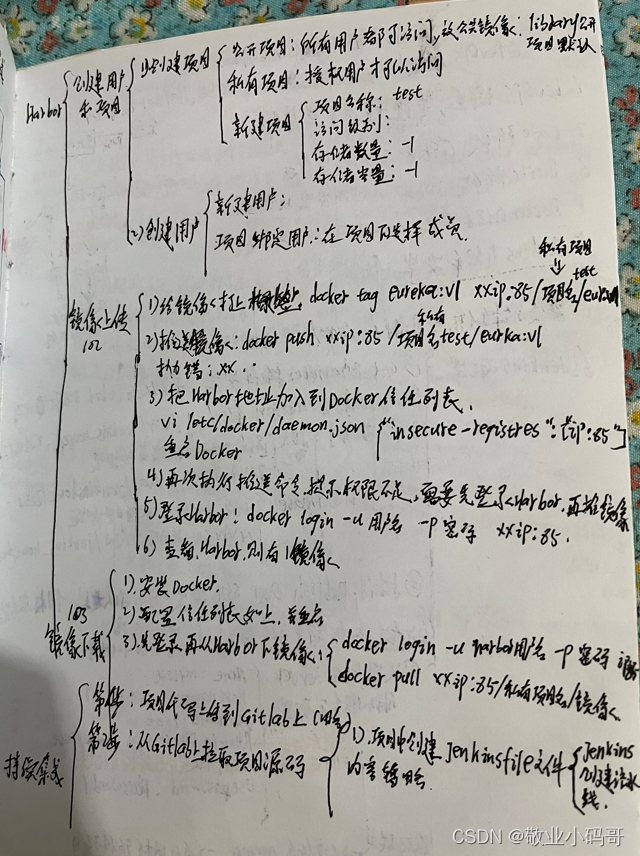 Harbor
创建用户
和项目
1)创建项目
公开项目：所有用户都可访问，放公共镜像，library公开
项目默认
私有项目：授权用户才可以访问
新建项目
项目名称：test
访问级别：
存储数量：-1
存储容量：-1
2)创建用户
新建用户：
项目绑定用户：在项目内选择成员.
私有项目
test
镜像上传
102
1)给镜像打上 docker tag eureka:v1 xxip:85/项目名/eureka
私有
2)推送镜像：docker push xxip:85/项目名test/eurka:v1
报错：xx.
3)把Harbor地址加入到Docker信任列表.
vi /etc/docker/daemon.json {"insecure-registres":["ip:85"]
重启Docker
4)再次执行推送命令,提示权限不足,需要先登录Harbor,再推镜像
5)登录Harbor：docker login -u 用户名 -p 密码 xxip:85.
6)查看Harbor,则有镜像
镜像下载
103
1)安装Docker.
2)配置信任列表如上,重启
3)先登录再从Harbor下镜像：
docker login -u harbor用户名 -p 密码
docker pull xxip:85/私有项目名/镜像
持续集成
第1步：项目代码上传到Gitlab上(略)
第2步：从Gitlab上拉取项目源码
1)项目中创建Jenkinsfile文件
内容略
Jenkins
创建流水
线.
CSDN @敬业小码哥